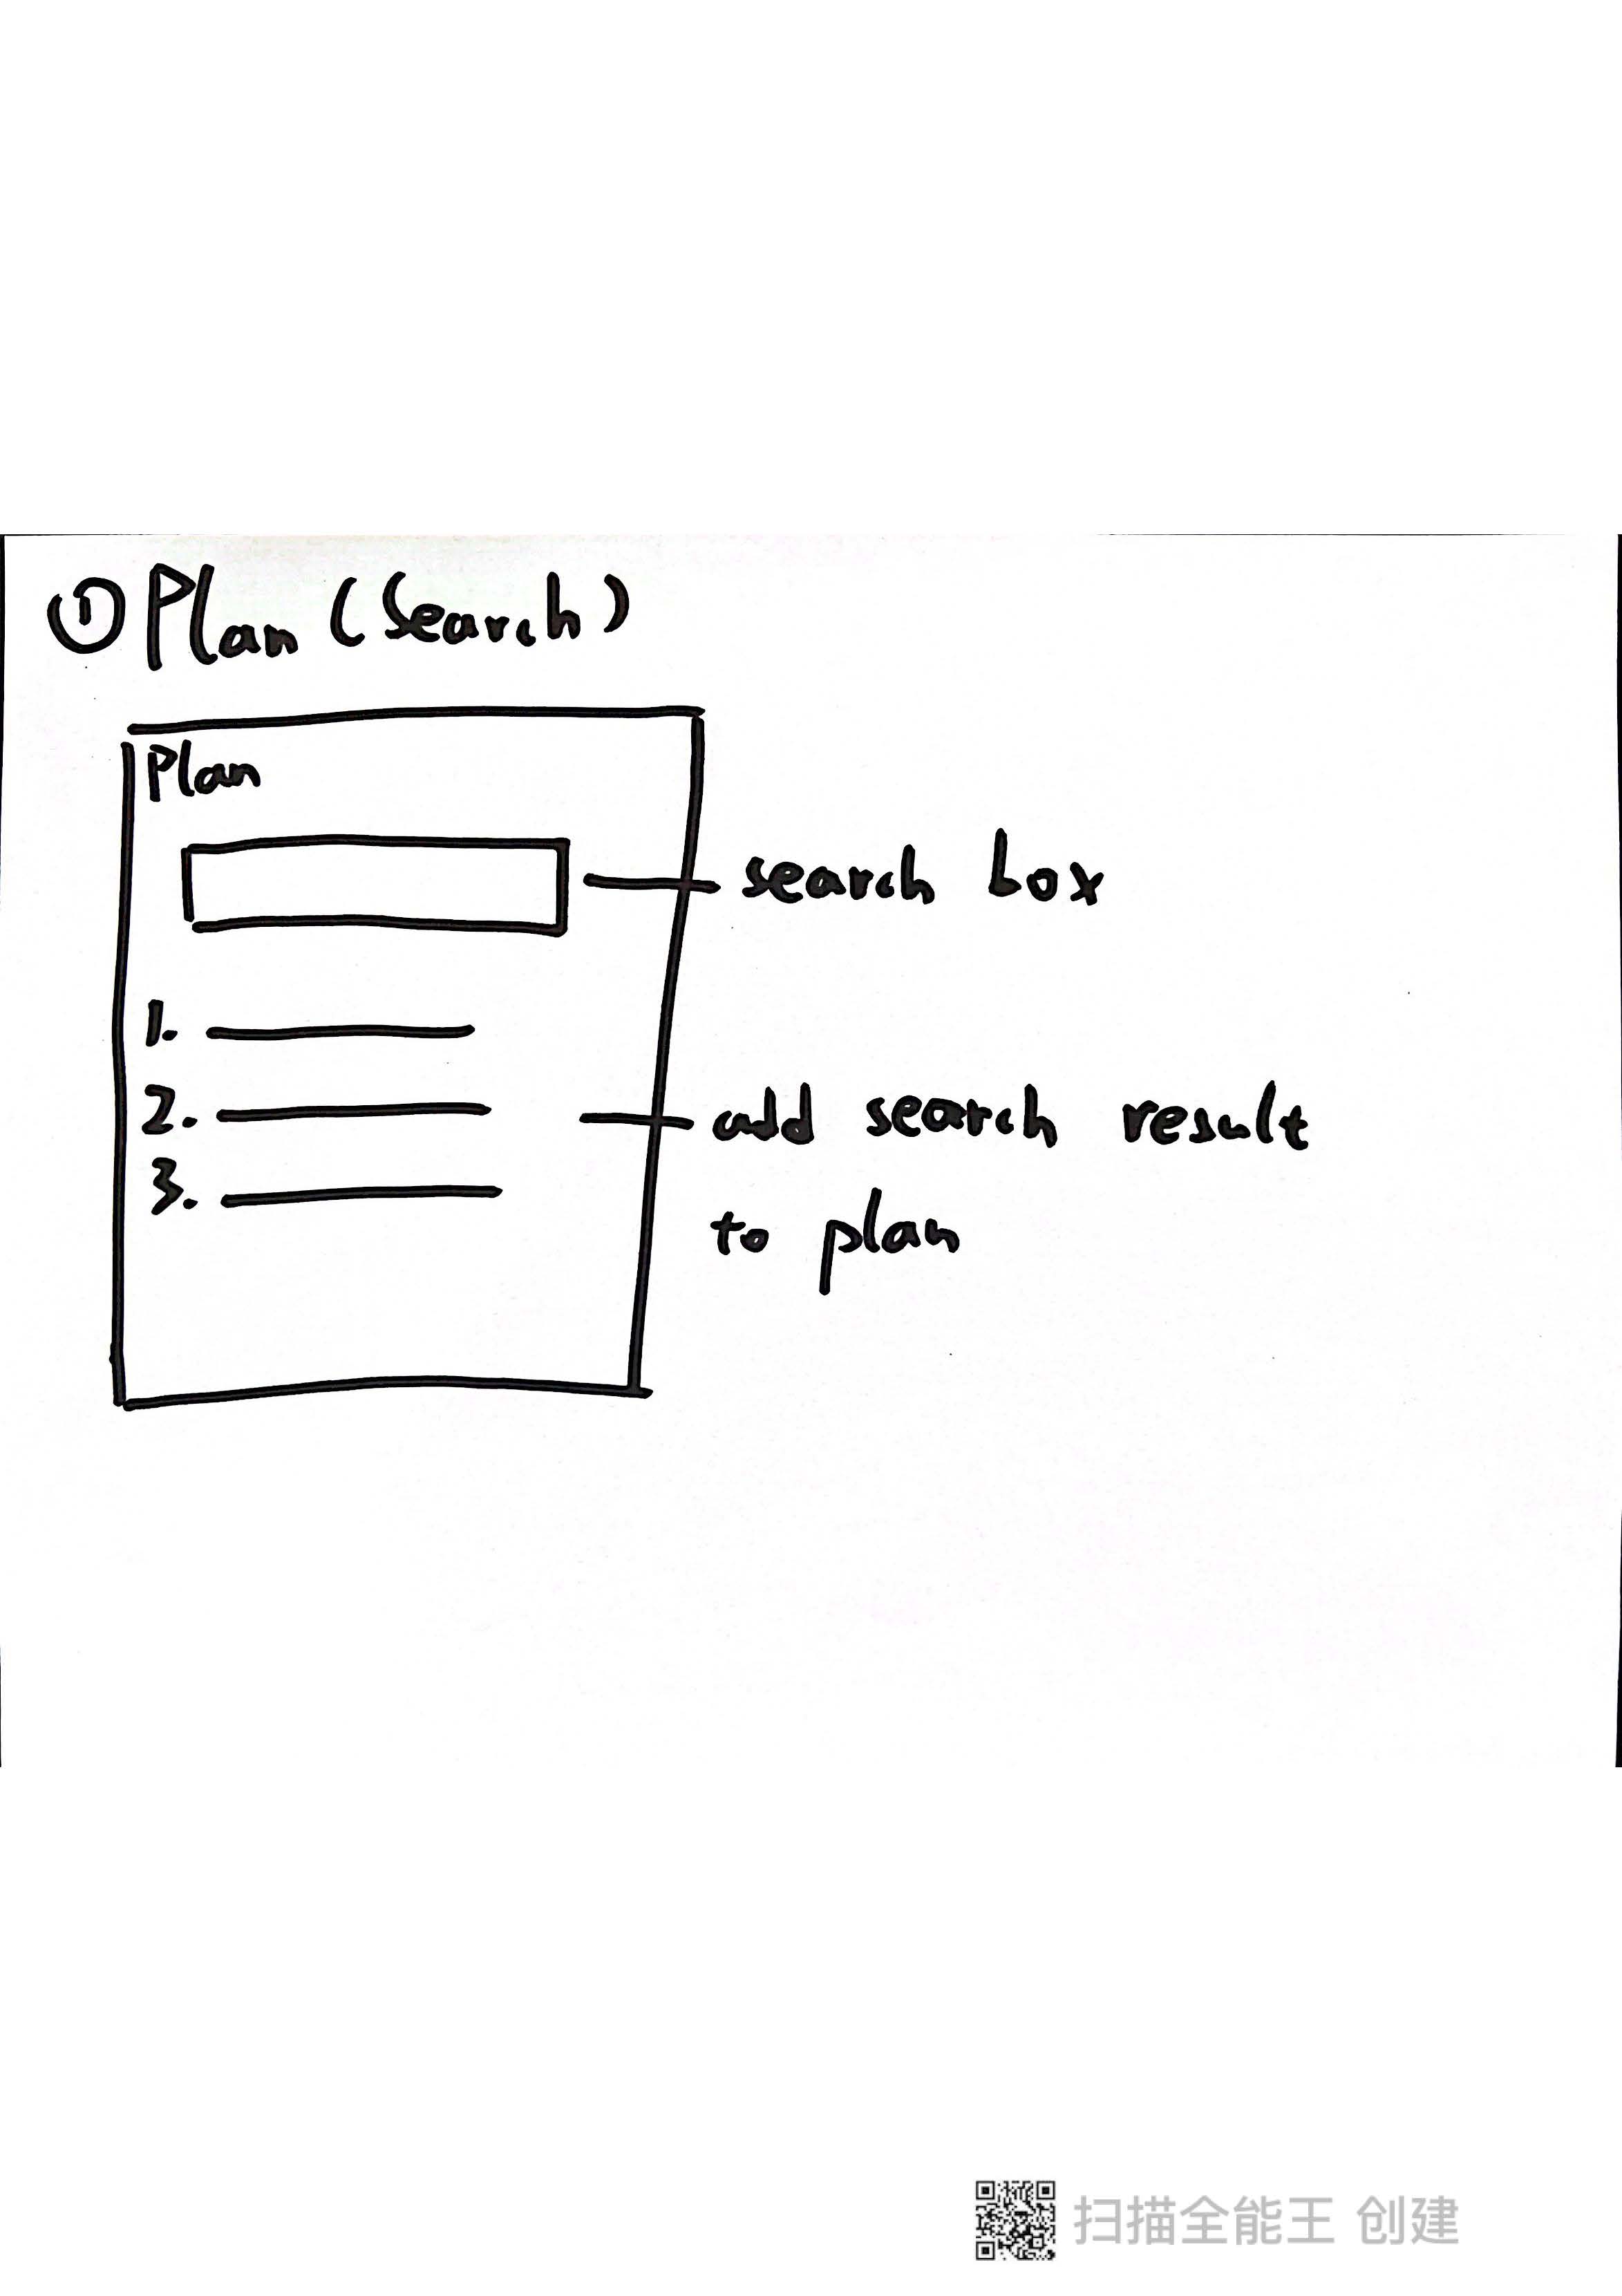 ① Plan (Search)
Plan
search box
1.
2.
3.
add search result
to plan
扫描全能王 创建